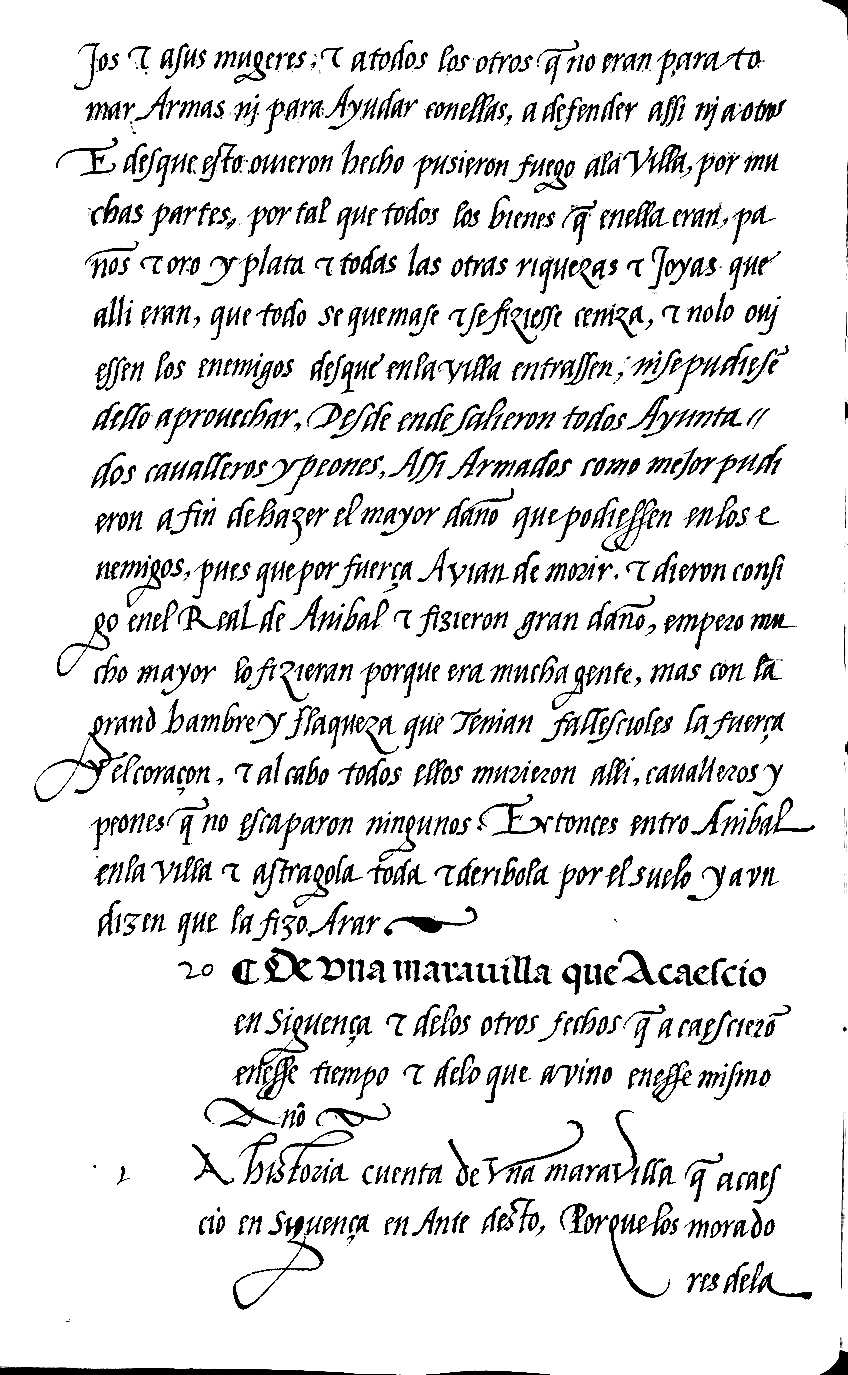 Jos τ asus mugeres; τ atodos los otros q̃ no eran para to
mar Armas nj para Ayudar conellas, a defender assi nj a otros
E desque esto ouieron hecho pusieron fuego ala Villa, por mu
chas partes, por tal que todos los bienes q̃ enella eran, pa
ños τ oro y plata τ todas las otras riquezas τ Joyas que
alli eran, que todo se quemase τ se fiziesse ceniza, τ nolo ouj
essen los enemigos desque enla villa entrassen; nise pudiesẽ
dello aprouechar. Desde ende salieron todos Ayunta //
dos caualleros y peones, Assi Armados como mejor pudi
eron a fin de hazer el mayor daño que podiessen enlos e
nemigos, pues que por fuerça Avian de morir. τ dieron consi
go enel Real de Anibal τ fizieron gran daño, empero mu
cho mayor lo fizieran porque era mucha gente, mas con la
grand hambre y flaqueza que Tenian fallescioles la fuerça
y el coraçon, τ al cabo todos ellos murieron alli, caualleros y
peones q̃ no escaparon ningunos. Extonces entro Anibal
enla villa τ astragola toda τ deribola por el suelo y avn
dizen que la fizo Arar
20 ¶ De vna marauilla que Acaescio
en Siguença τ delos otros fechos q̃ acaescierõ
enesse tiempo τ delo que avino enesse mismo
Año
1 A historia cuenta de vna maravilla q̃ acaes
cio en Siguença en Ante desto, Porque los morado
res dela